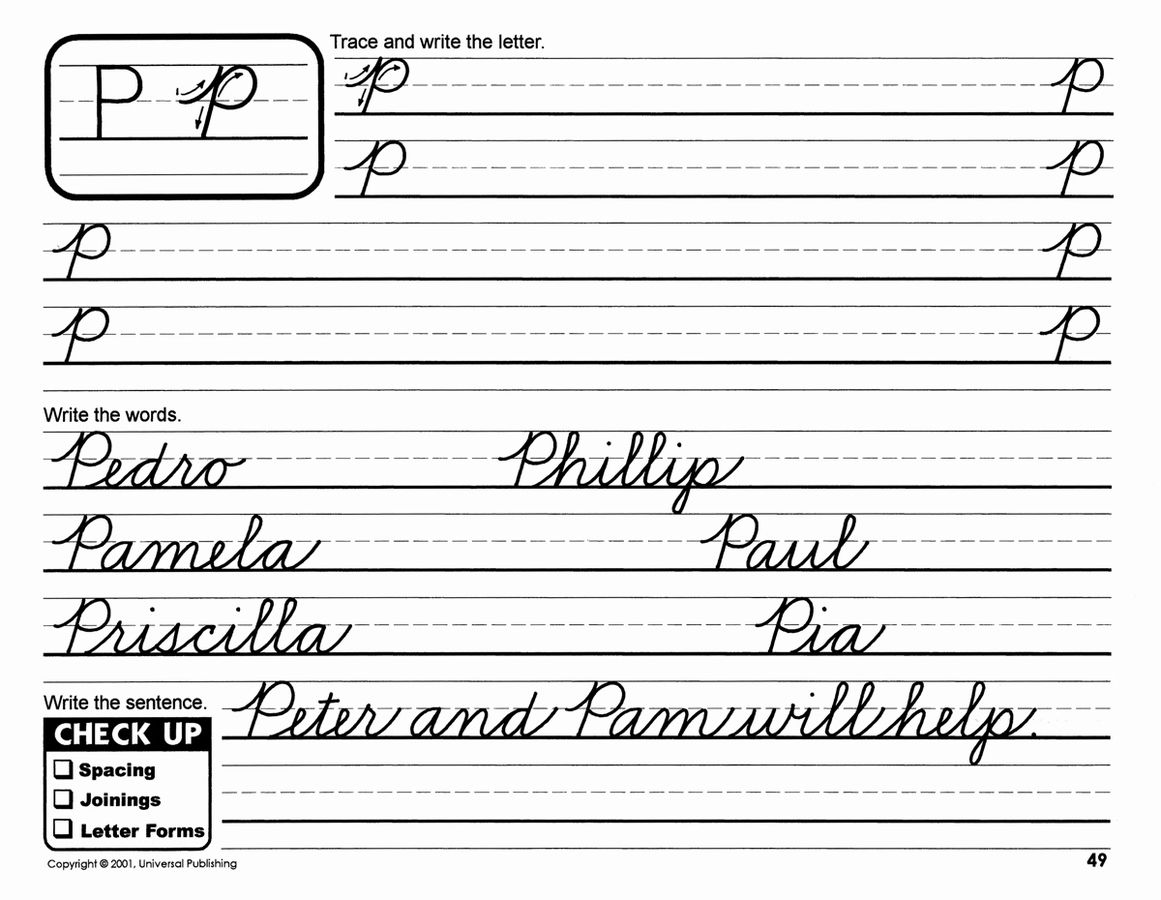 Trace and write the letter.
P P
P P
P P
P P
P P
Write the words.
Pedro Phillip
Pamela Paul
Priscilla Pia
Write the sentence.
Peter and Pam will help.
CHECK UP
Spacing
Joinings
Letter Forms
Copyright © 2001, Universal Publishing
49